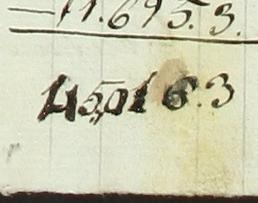 — 11.695.3.
45,016.3